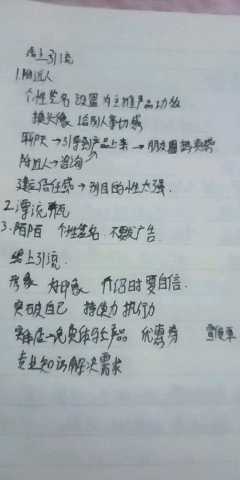 线上引流
1.附近人
个性签名 设置为主推产品功效
换头像 给别人亲切感
聊天→引导到产品上来→朋友圈
附近人→咨询
建立信任感→别目的性太强.
2.漂流瓶
3.陌陌 个性签名 不要广告
线下引流.
形象 好印象 介绍时要自信.
突破自己 持续力 执行力
实体店→免费体验产品 优惠券 宣传单
专业知识解决需求